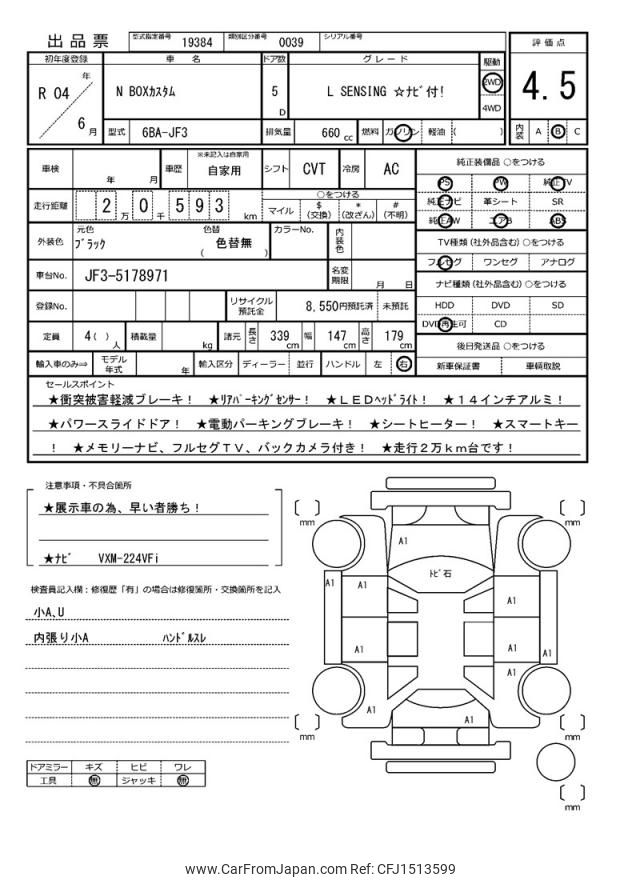 出品票 型式指定番号 19384 類別区分番号 0039 シリアル番号
評価点
4.5
内装 A B C
初年度登録 車名 ドア数 グレード 駆動
R 04 年 6 月
N BOXカスタム 5 D L SENSING ☆ナビ付!
2WD
4WD
型式 6BA-JF3 排気量 660 cc 燃料 ガソリン 軽油 ( )
車検 年 月 車歴 ※未記入は自家用 自家用 シフト CVT 冷房 AC
走行距離 2 万 0 千 5 9 3 km
○をつける
マイル $(交換) *(改ざん) #(不明)
外装色 元色 ブラック 色替 ( 色替無 ) カラーNo. 内装色
車台No. JF3-5178971 名変期限 月 日
登録No. リサイクル預託金 8,550円預託済 未預託
定員 4( ) 人 積載量 kg 諸元 長さ 339 cm 幅 147 cm 高さ 179 cm
輸入車のみ⇒ モデル年式 年 輸入区分 ディーラー 並行 ハンドル 左 右
純正装備品 ○をつける
PS PW 純正TV
純正ナビ 革シート SR
純正AW エアB ABS
TV種類(社外品含む)○をつける
フルセグ ワンセグ アナログ
ナビ種類(社外品含む)○をつける
HDD DVD SD
DVD再生可 CD
後日発送品 ○をつける
新車保証書 車輌取説
セールスポイント
★衝突被害軽減ブレーキ! ★リアパーキングセンサー! ★LEDヘッドライト! ★14インチアルミ!
★パワースライドドア! ★電動パーキングブレーキ! ★シートヒーター! ★スマートキー
! ★メモリーナビ、フルセグTV、バックカメラ付き! ★走行2万km台です!
注意事項・不具合箇所
★展示車の為、早い者勝ち!
★ナビ VXM-224VFi
検査員記入欄:修復歴「有」の場合は修復箇所・交換箇所を記入
小A,U
内張り小A ハンドルスレ
ドアミラー キズ ヒビ ワレ
工具 無 ジャッキ 無
mm
mm
A1
トビ石
A1
A1
A1
A1
A1
A1
A1
A1
A1
A1
mm
mm
mm
www.CarFromJapan.com Ref: CFJ1513599